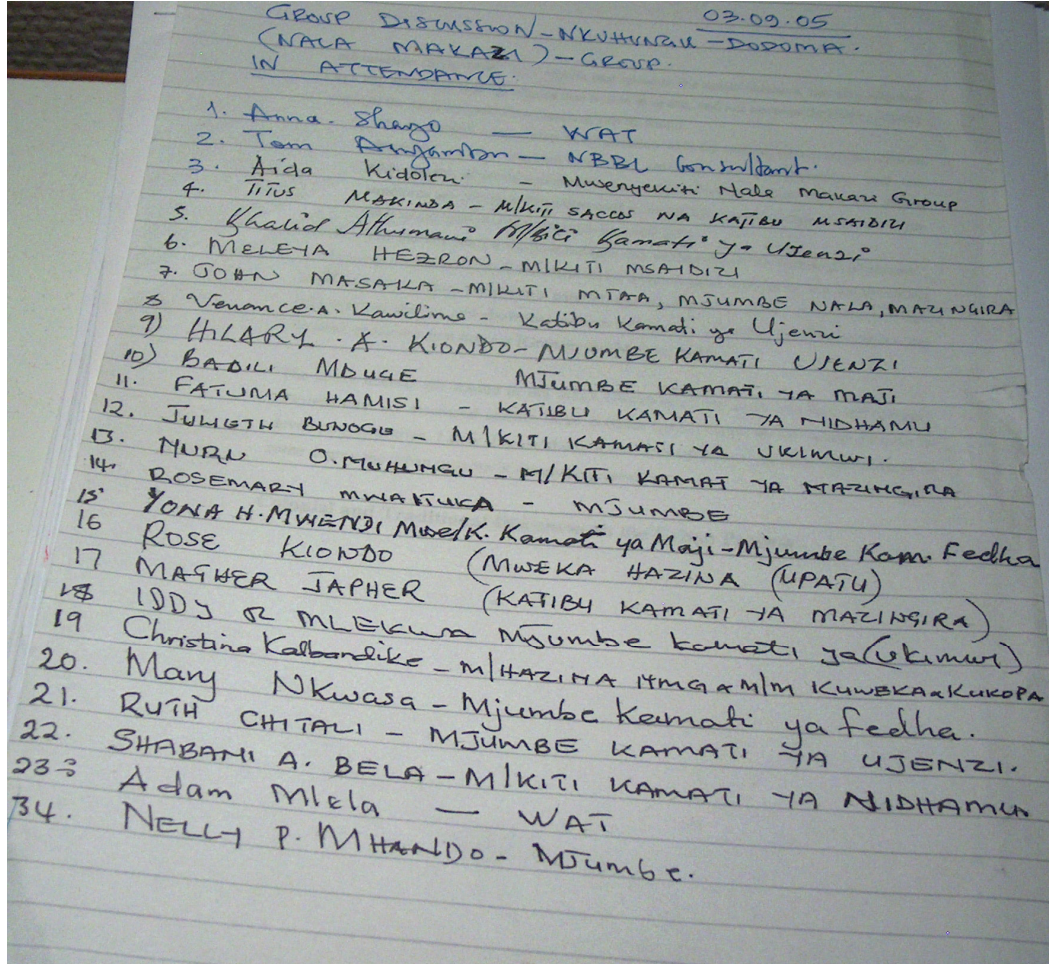 03.09.05
GROUP DISCUSSION - NKUHUNGU - DODOMA.
(NALA MAKAZI) - GROUP.
IN ATTENDANCE.
1. Anna. Shayo — WAT
2. Tom — NBBL Consultant.
3. Aida Kidolezi - Mwenyekiti Nala Makazi Group
4. TITUS MAKINDA - M/KITI SACCOS NA KATIBU MSAIDIZI
5. Khalid Athumani M/kiti Kamati ya Ujenzi
6. MELEYA HEZRON - M/KITI MSAIDIZI
7. JOHN MASAKA - M/KITI MTAA, MJUMBE NALA, MAZINGIRA
8 Venance.A. Kawilima - Katibu Kamati ya Ujenzi
9) HILARY . A. KIONDO - MJUMBE KAMATI UJENZI
10) BADILI MDUGE MJUMBE KAMATI YA MAJI
11. FATUMA HAMISI - KATIBU KAMATI YA NIDHAMU
12. JULIETH BUNOGU - M/KITI KAMATI YA UKIMWI.
13. NURU O. MUHUNGU - M/KITI KAMATI YA MAZINGIRA
14. ROSEMARY MWAKUKA - MJUMBE
15 YONA H. MWENDI Mwe/K. Kamati ya Maji - Mjumbe Kam. Fedha
16 ROSE KIONDO (MWEKA HAZINA (UPATU)
17 MAGHER JAPHER (KATIBU KAMATI YA MAZINGIRA)
18 IDDY R MLEKWA Mjumbe kamati ya (ukimwi)
19 Christina Kalbandike - M/HAZINA M/M KUWEKA & KUKOPA
20. Mary Nkwasa - Mjumbe Kamati ya fedha.
21. RUTH CHITALI - MJUMBE KAMATI YA UJENZI.
22. SHABANI A. BELA - M/KITI KAMATI YA NIDHAMU
23 Adam Mlela — WAT
34. NELLY P. MHANDO - MJumbe.